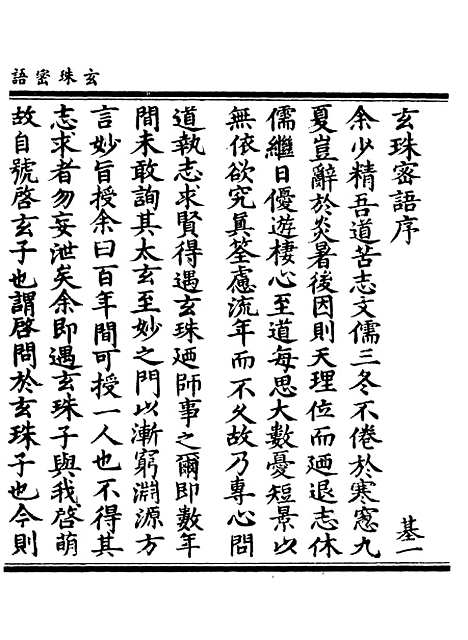 玄珠密語
玄珠密語序 基一
余少精吾道苦志文儒三冬不倦於寒窻九
夏豈辭於炎暑後因則天理位而廼退志休
儒繼日優遊棲心至道每思大數憂短景以
無依欲究真筌慮流年而不久故乃專心問
道執志求賢得遇玄珠廼師事之爾即數年
間未敢詢其太玄至妙之門以漸窮淵源方
言妙旨授余曰百年間可授一人也不得其
志求者勿妄泄矣余即遇玄珠子與我啓萌
故自號啓玄子也謂啓問於玄珠子也今則